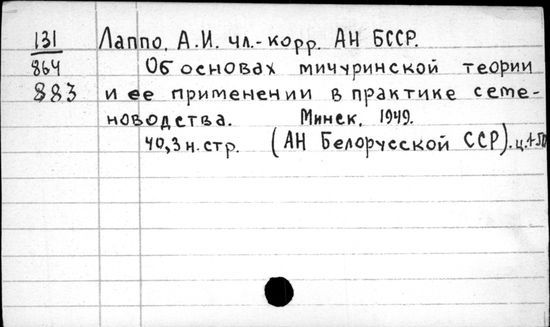 131 Лаппо, А.И. чл.-корр. АН БССР.
864 Об основах мичуринской теории
883 и ее применении в практике семе-
новодства. Минск, 1949.
40,3 н. стр. (АН Белорусской ССР). ц.